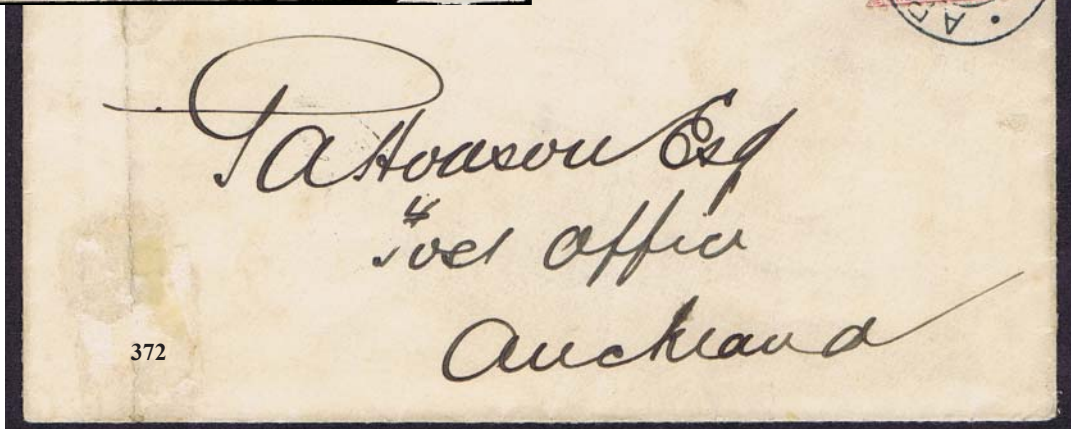 P A Hodson Esq
Post Office
Auckland
372